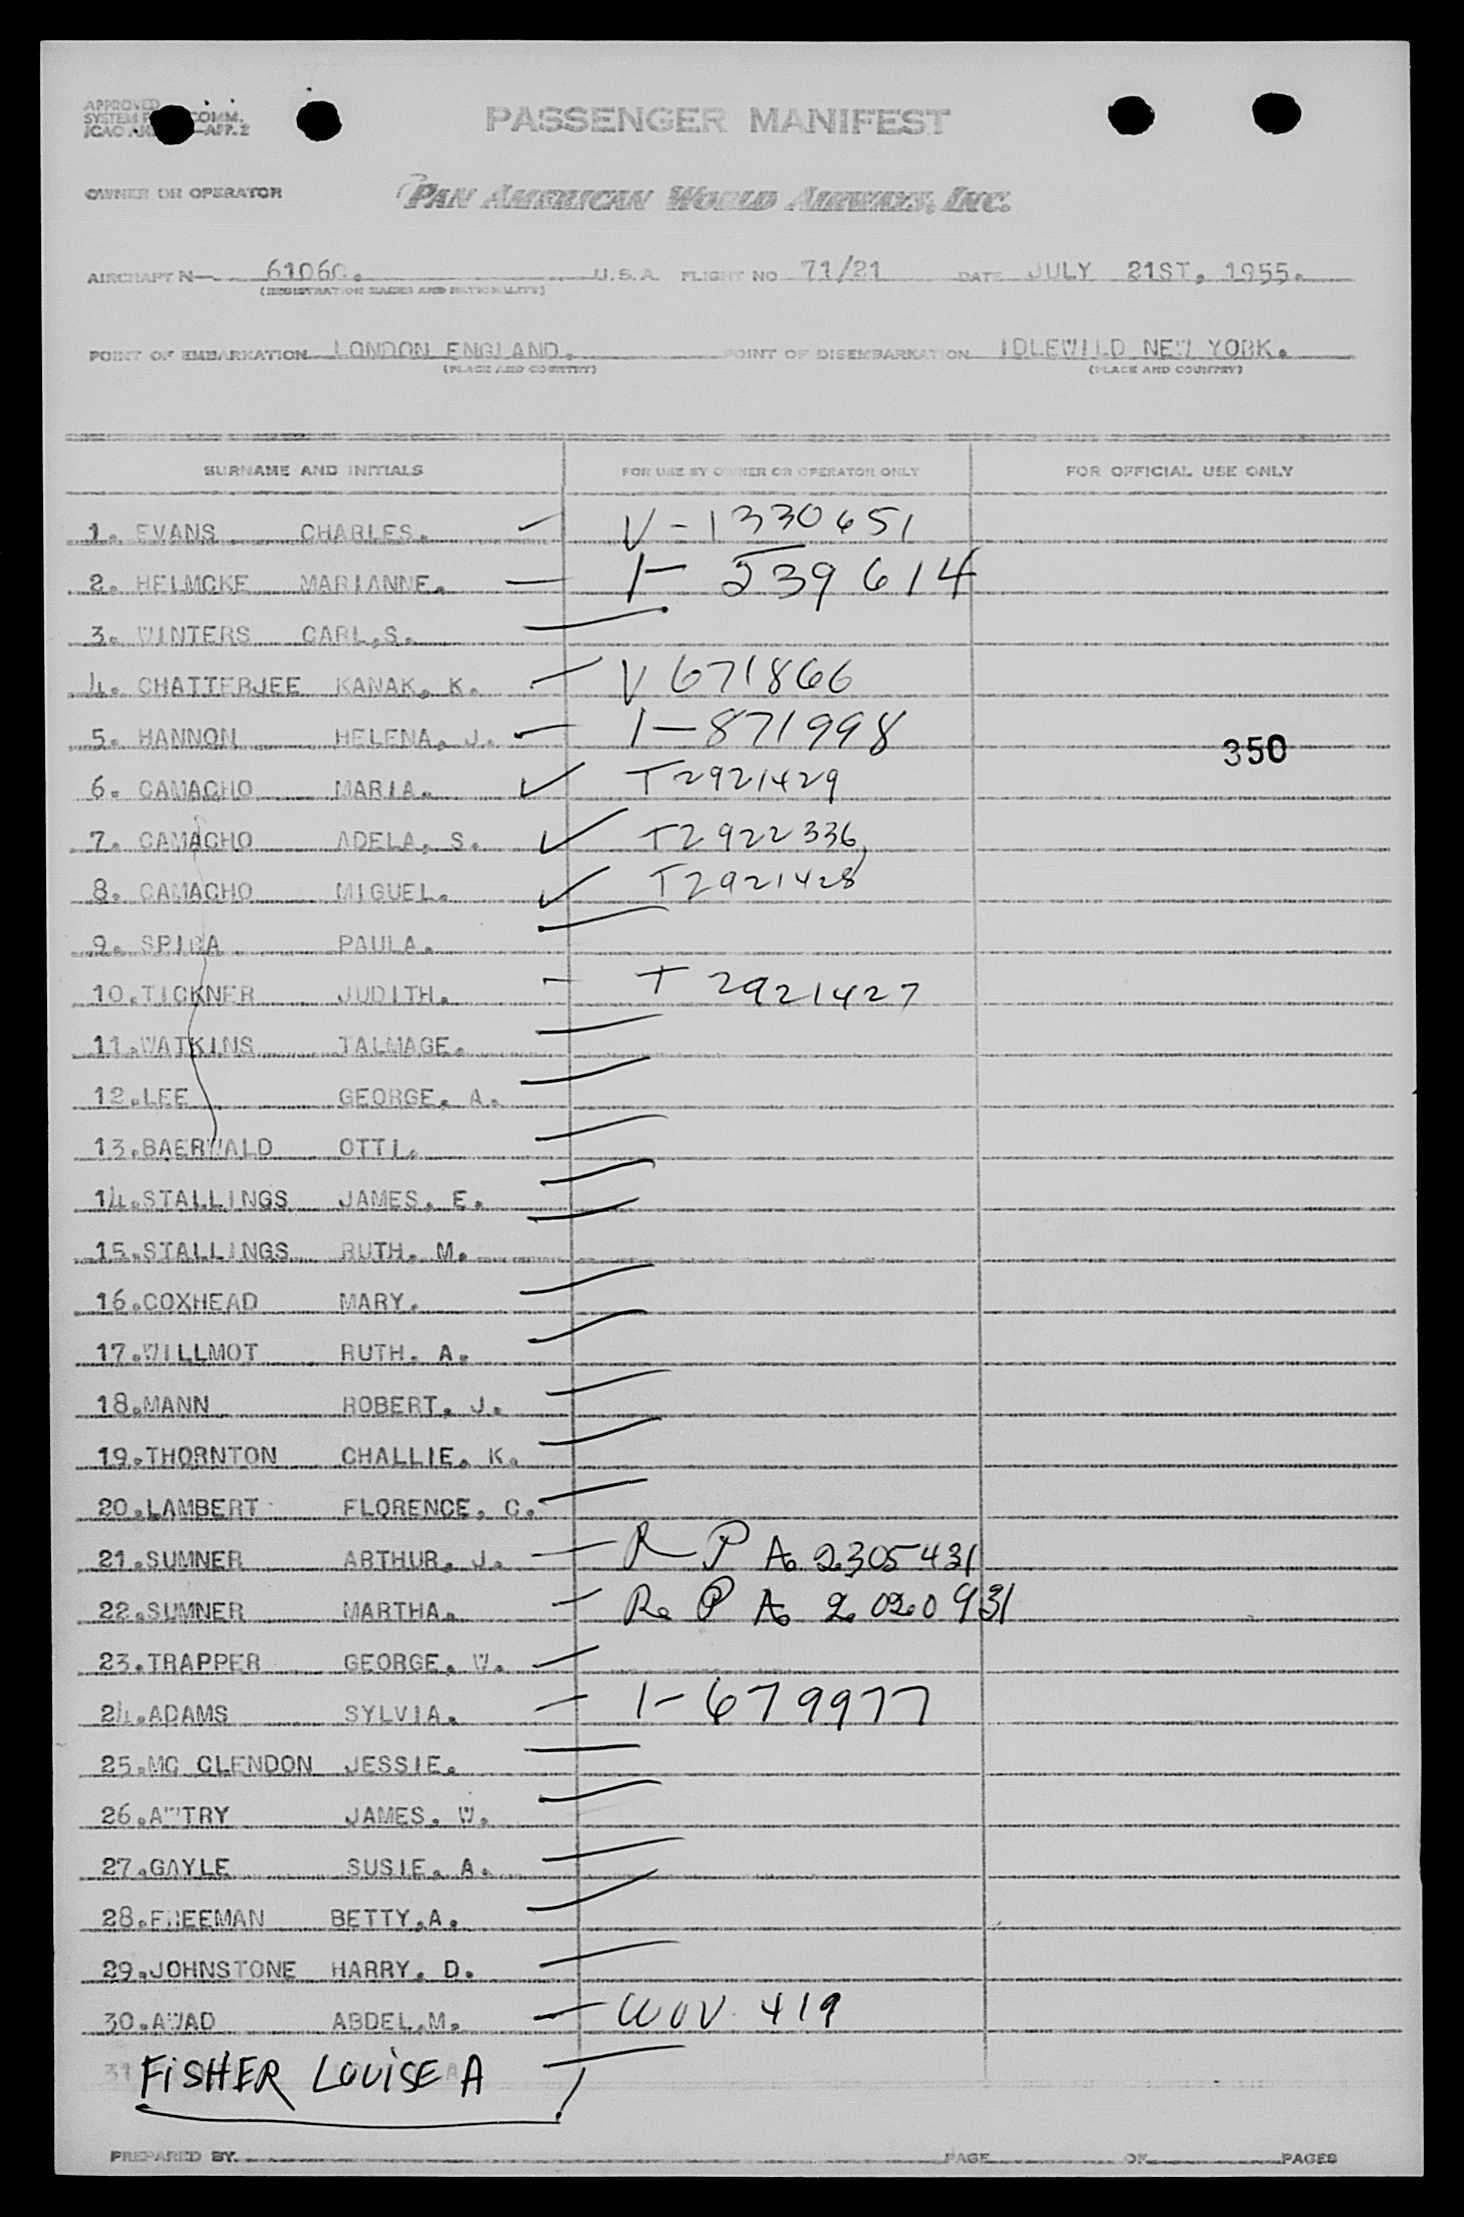 APPROVED
SYSTEM COMM.
ICAO —APP.2
PASSENGER MANIFEST
OWNER OR OPERATOR PAN AMERICAN WORLD AIRWAYS, INC.
AIRCRAFT N— 6106C. U.S.A. FLIGHT NO 71/21 DATE JULY 21ST, 1955.
(REGISTRATION MARKS AND NATIONALITY)
POINT OF EMBARKATION LONDON ENGLAND. POINT OF DISEMBARKATION IDLEWILD NEW YORK.
(PLACE AND COUNTRY) (PLACE AND COUNTRY)
SURNAME AND INITIALS FOR USE BY OWNER OR OPERATOR ONLY FOR OFFICIAL USE ONLY
1. EVANS CHARLES. V-1330651
2. HELMCKE MARIANNE. I- 539614
3. WINTERS CARL,S.
4. CHATTERJEE KANAK, K. V 671866
5. HANNON HELENA, J. I-871998
350
6. CAMACHO MARIA. T2921429
7. CAMACHO ADELA, S. T2922336
8. CAMACHO MIGUEL. T2921428
9. SPIRA PAULA.
10.TICKNER JUDITH. T 2921427
11.WATKINS TALMAGE.
12.LEE GEORGE. A.
13.BAERWALD OTTI.
14.STALLINGS JAMES. E.
15.STALLINGS RUTH. M.
16.COXHEAD MARY.
17.WILLMOT RUTH. A.
18.MANN ROBERT. J.
19.THORNTON CHALLIE. K.
20.LAMBERT FLORENCE. C.
21.SUMNER ARTHUR. J. R P A. 2305431
22.SUMNER MARTHA. R. P A. 2020931
23.TRAPPER GEORGE. W.
24.ADAMS SYLVIA. I-679977
25.MC CLENDON JESSIE.
26.AWTRY JAMES. W.
27.GAYLE SUSIE. A.
28.FREEMAN BETTY,A.
29.JOHNSTONE HARRY. D.
30.AWAD ABDEL.M. WUV 419
31 FiSHER LOUiSE A
PREPARED BY. PAGE OF PAGES